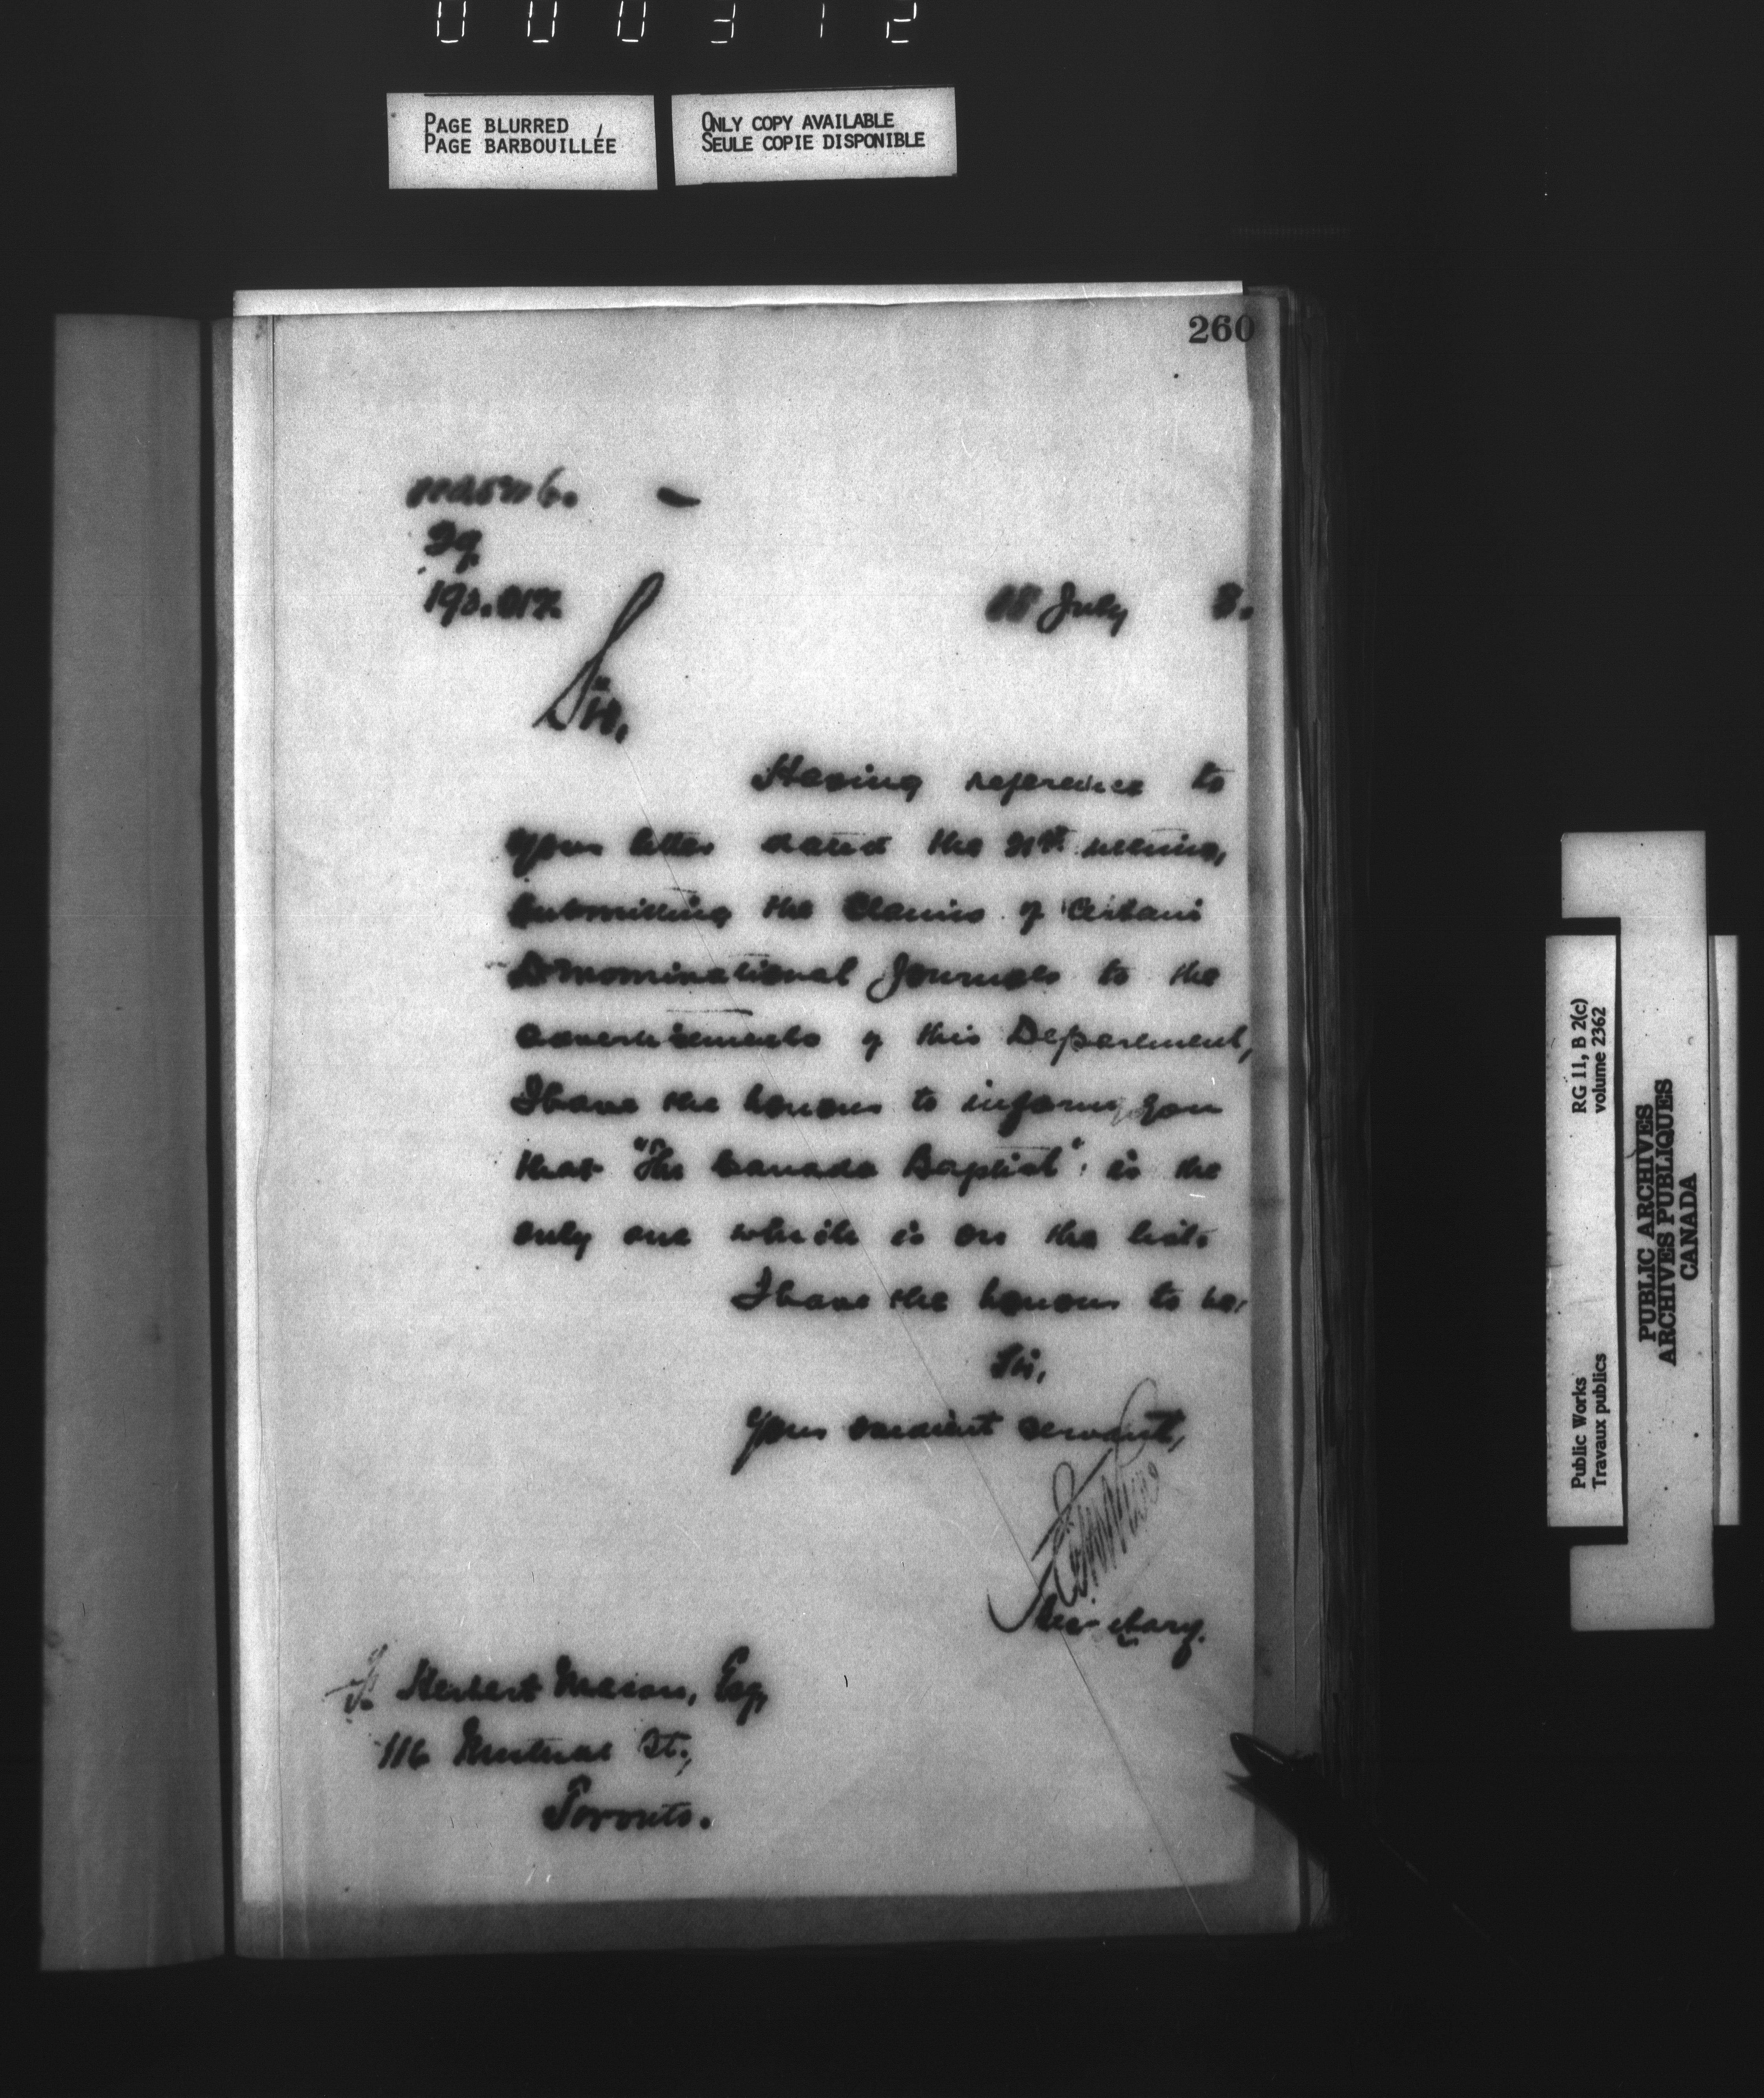 000312
PAGE BLURRED
PAGE BARBOUILLÉE
ONLY COPY AVAILABLE
SEULE COPIE DISPONIBLE
260
July 3.
Sir,
Having reference to
your letter dated the 21st
submitting the Claims of Certain
Denominational Journals to the
advertisements of this Department,
I have the honour to inform you
that "The Canada Baptist" is the
only one which is on the list.
I have the honour to be,
Sir,
Your obedient servant,
Secretary.
Herbert Mason, Esq,
116 Mutual St.,
Toronto.
RG 11, B 2(c)
volume 2362
Public Works
Travaux publics
PUBLIC ARCHIVES
ARCHIVES PUBLIQUES
CANADA